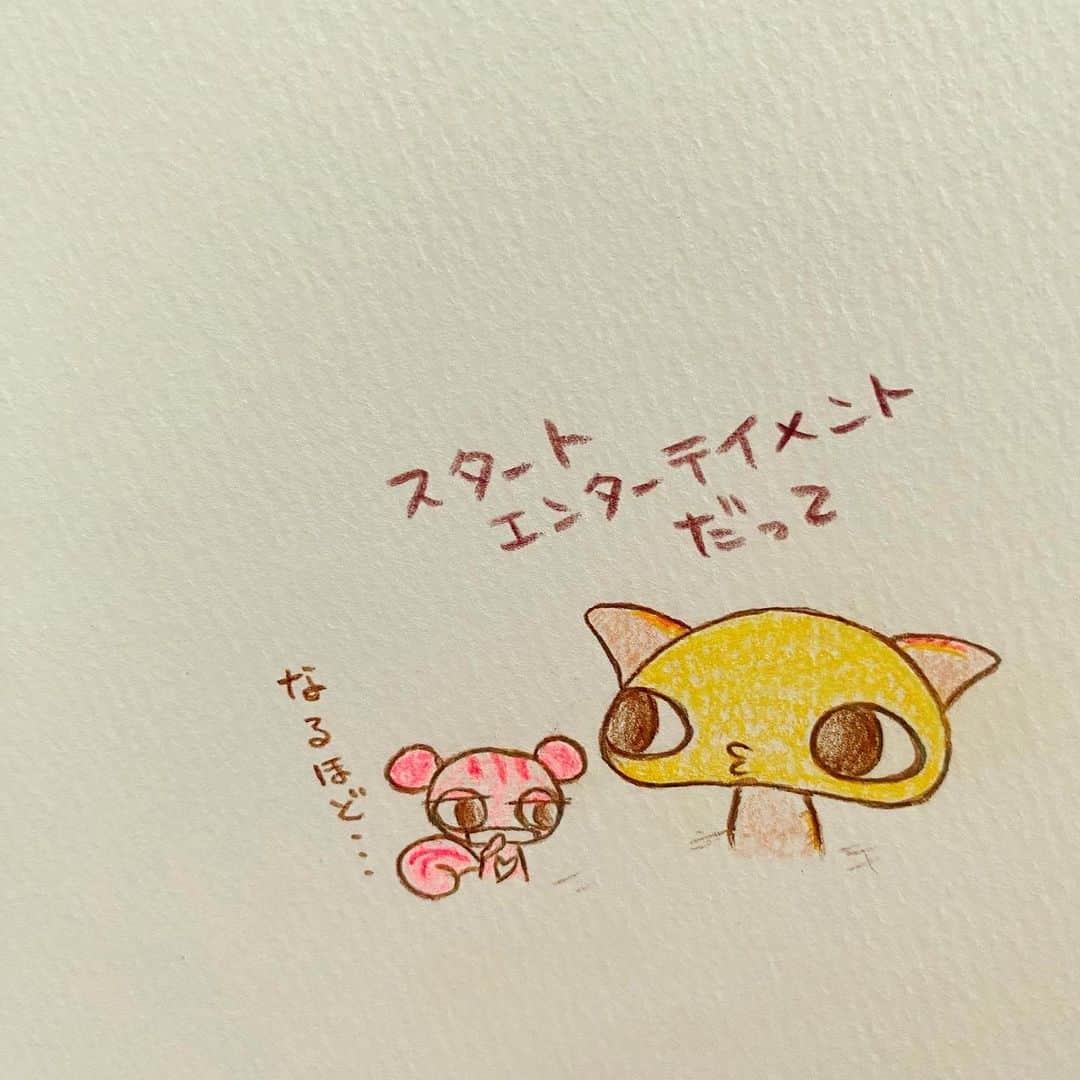 スタート
エンターテイメント
だって
なるほど...